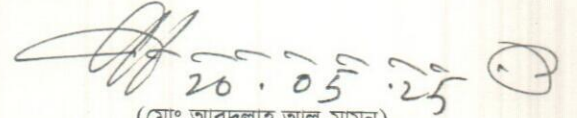 20.05.25
(মোঃ আবদুল্লাহ আল মামুন)